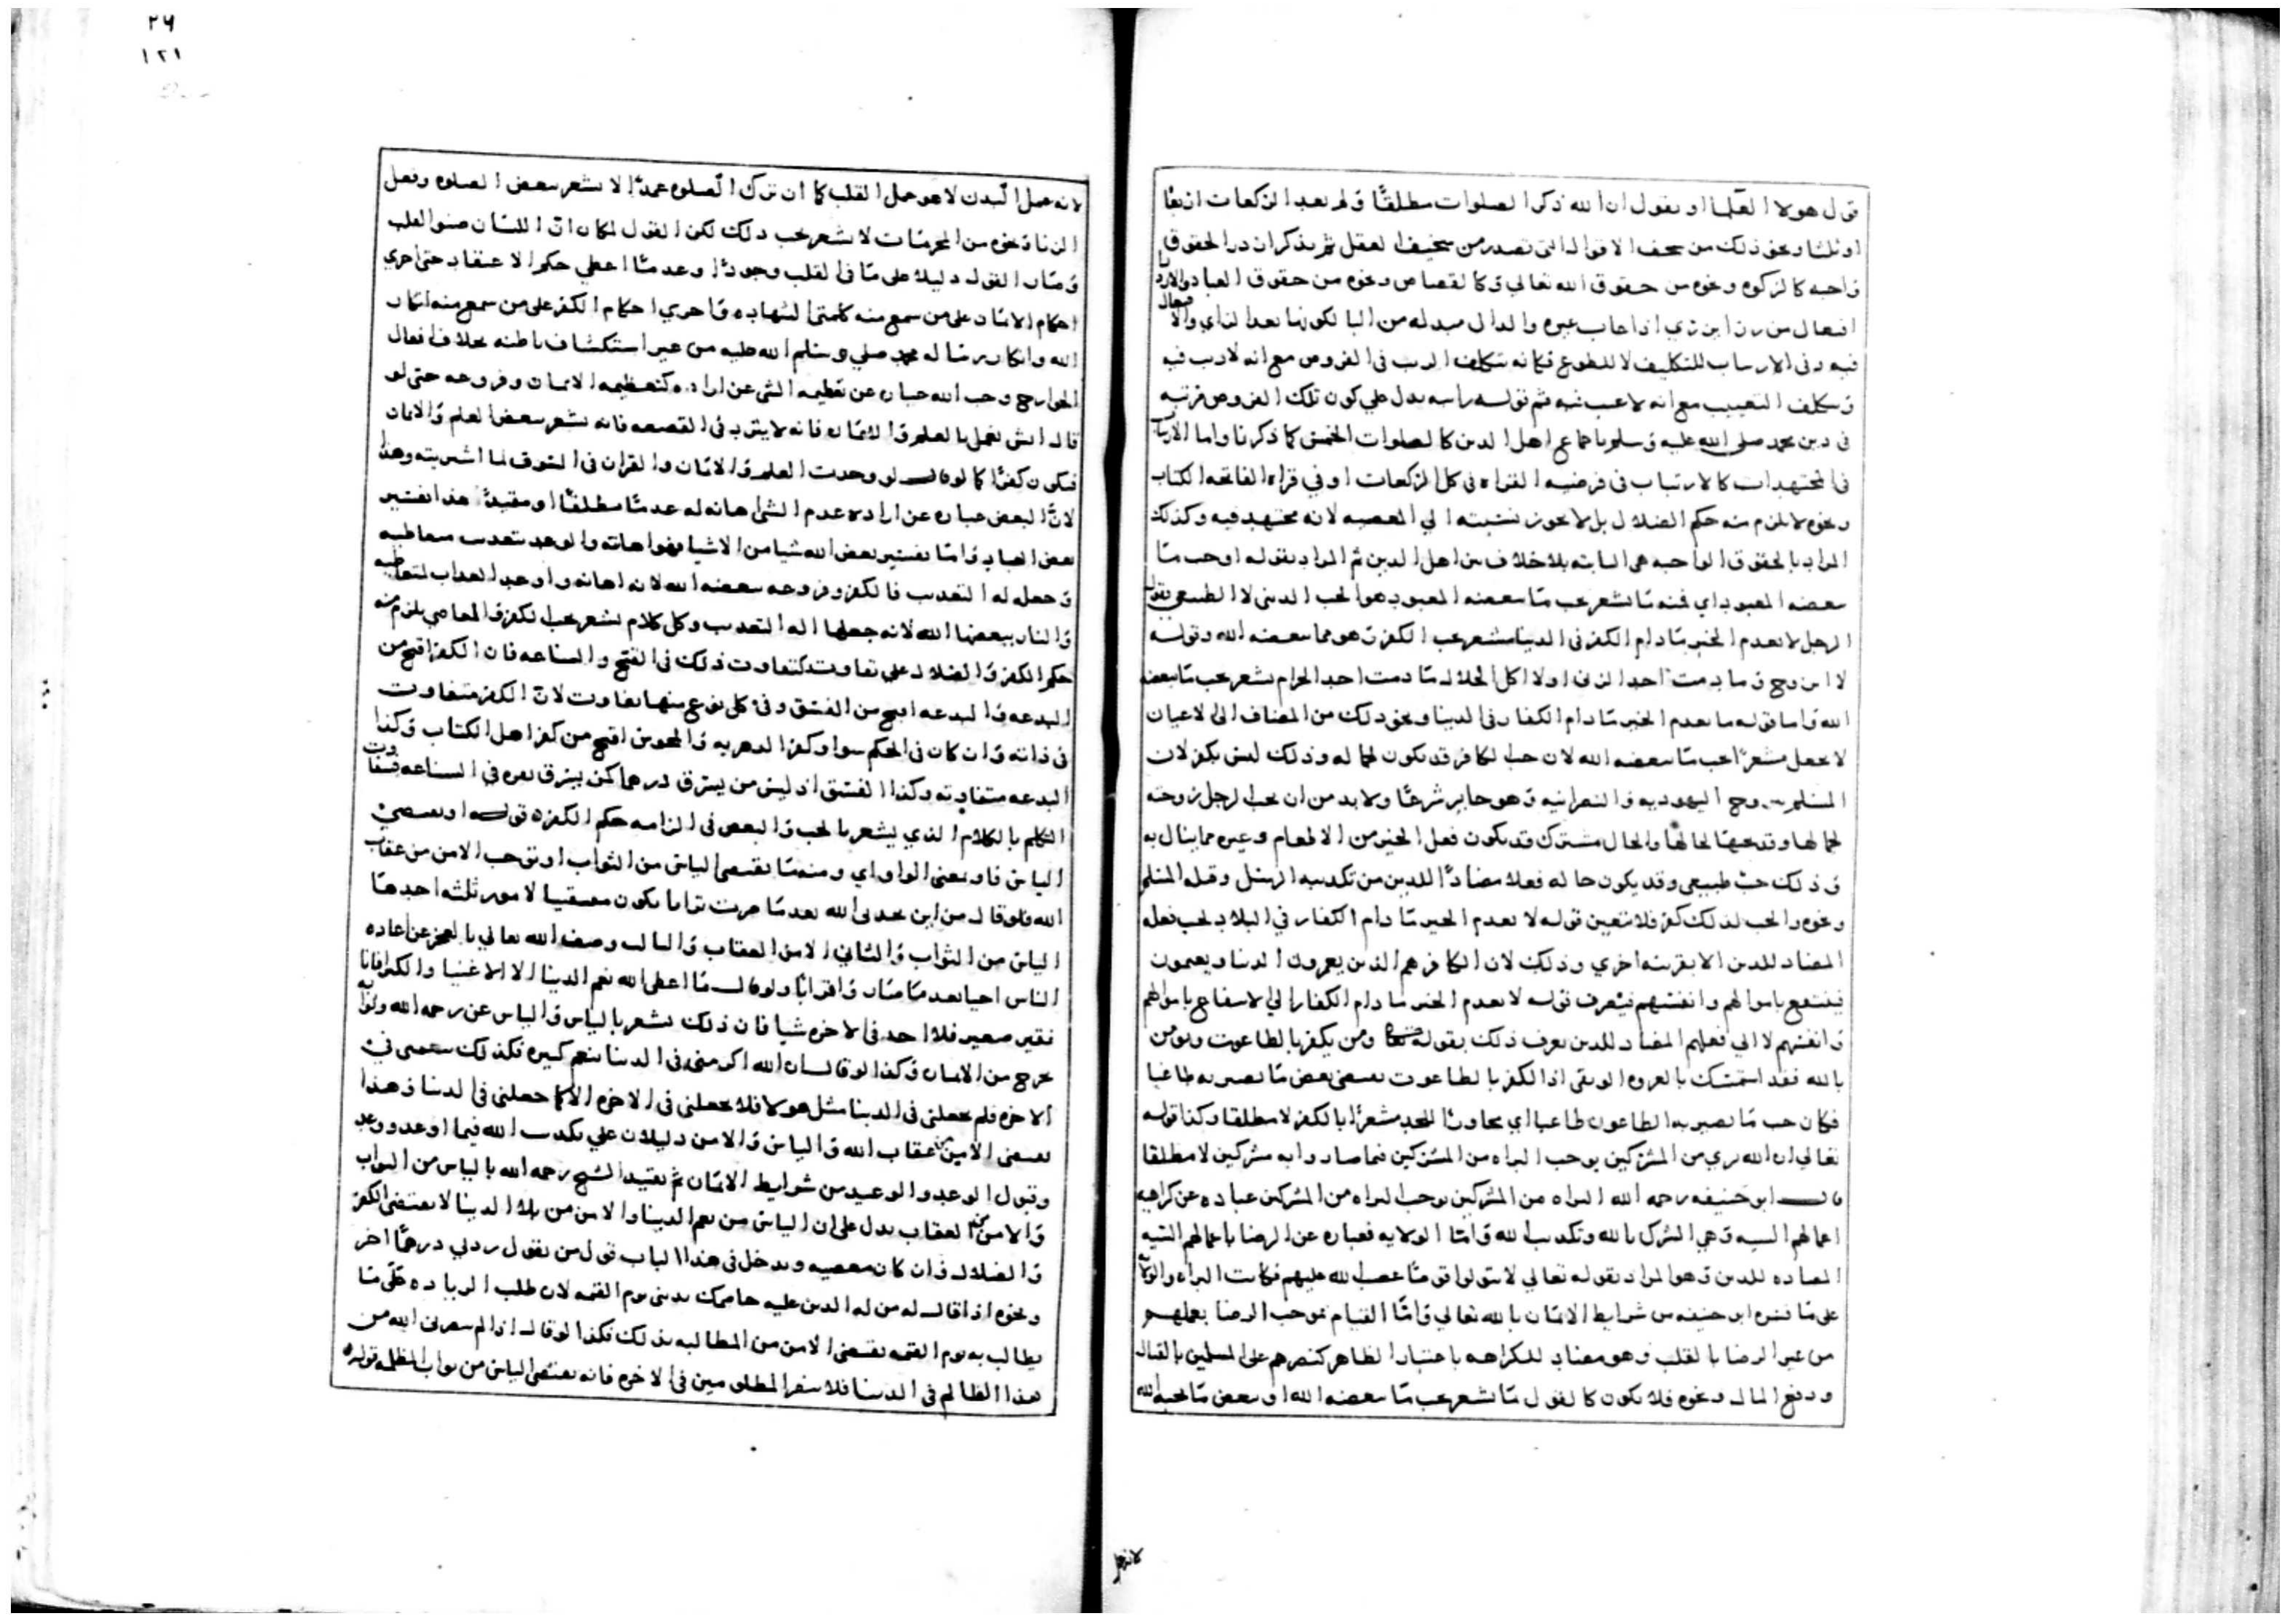 قول هولا العلما او يقول ان الله ذكر الصلوات مطلقا ولم يعد الركعات اربعا
او ثلثا ونحو ذلك من سخف الاقوال التى تصدر من سخيف العقل ثم يذكر ان در الحقوق
واجبه كالزكوه ونحوه من حقوق الله تعالى وكالقصاص ونحوه من حقوق العباد والازدرا
افتعال من زرا يزري اذا عاب غيره والدال مبدله من التا لكونها بعد الزاي والافتعال
فيه وفى الارتياب للتكليف لا للطوع فكانه يتكلف الريب فى الفروض مع انه لا ريب فيه
ويتكلف التعييب مع انه لا عيب فيه ثم قوله راسه يدل على كون تلك الفروض مرتبه
فى دين محمد صلى الله عليه وسلم باجماع اهل الدين كالصلوات الخمس كما ذكرنا واما الارتياب
فى المجتهدات كالارتياب فى فرضيه القراه فى كل الركعات او في قراه الفاتحه الكتاب
ونحوه لا يلزم منه حكم الضلال بل لا يجوز نسبته الي المعصيه لانه مجتهد فيه وكذلك
المراد بالحقوق الواجبه هى الثابته بلا خلاف من اهل الدين ثم المراد بقوله او حب ما
يبغضه المعبود اي محبه ما يشعر بحب ما يبغضه المعبود هو الحب الدينى لا الطبيعى بقول
الرجل لا يعدم الخير ما دام الكفر فى الدنيا مشعر بحب الكفر وهو مما يبغضه الله وقوله
لا اتزوج ما دمت اجد الزنى او لا اكل الحلال ما دمت اجد الحرام يشعر بحب ما يبغضه
الله واما قوله ما يعدم الخير ما دام الكفار فى الدنيا ونحو ذلك من المضاف الى الاعيان
لا يجعل مشعرا بحب ما يبغضه الله لان حب الكافر قد يكون لجماله وذلك ليس بكفر لان
المسلم يتزوج اليهوديه والنصرانيه وهو جايز شرعا ولا بد من ان يحب الرجل زوجته
لجمالها وقد يحبها لحالها والحال مشترك قد يكون فعل الخير من الاطعام وغيره مما ينال به
وذلك حب طبيعى وقد يكون حاله فعلا مضادا للدين من تكذيب الرسل وقتل المسلم
ونحوه والحب لذلك كفر فلا يتعين قوله لا يعدم الخير ما دام الكفار في البلاد لحب فعله
المضاد للدين الا بقرينه اخري وذلك لان الكافر هم الذين يعمرون الدنيا ويعمون
فينتفع باموالهم وانفسهم فيصرف قوله لا يعدم الخير ما دام الكفار الى الانتفاع باموالهم
وانفسهم لا الي فعلهم المضاد للدين يعرف ذلك بقوله تعالى ومن يكفر بالطاغوت ويومن
بالله فقد استمسك بالعروه الوثقى اذ الكفر بالطاغوت يقتضى بغض ما يصير به طاغيا
فكان حب ما يصير به الطاغوت طاغيا اي مجاوزا للحد مشعرا بالكفر لا مطلقا وكذا قوله
تعالى ان الله بري من المشركين يوجب البراه من المشركين فيما صاروا به مشركين لا مطلقا
قال ابو حنيفه رحمه الله البراه من المشركين يوجب البراه من المشركين عباده عن كراهيه
اعمالهم السيه وهي الشرك بالله وتكذيب الله واما الولايه فعباره عن الرضا باعمالهم السيه
المضاده للدين وهو المراد بقوله تعالى لا تتولوا قوما غضب الله عليهم فكانت البراه والولايه
على ما فسره ابو حنيفه من شرايط الايمان بالله تعالي واما القيام بموجب الرضا بعملهم
من غير الرضا بالقلب وهو مضاد للكراهه باعتبار الظاهر كنصرهم على المسلمين بالقتال
ودفع المال ونحوه فلا يكون كالقول ما يشعر بحب ما يبغضه الله او يبغض ما يحبه الله
لانه عمل
٢٦
١٢١
لانه عمل البدن لا هو عمل القلب كما ان ترك الصلوه عمدا لا يشعر ببغض الصلوه وفعل
الزنا ونحوه من المحرمات لا يشعر بحب ذلك لكن القول لمكان ان اللسان صنو القلب
وصار القول دليلا على ما فى القلب وجودا وعدما اعطي حكم الاعتقاد حتى اجري
احكام الايمان على من سمع منه كلمتى الشهاده واجري احكام الكفر على من سمع منه انكار
الله وانكار رساله محمد صلي الله عليه وسلم من غير استكشاف باطنه بخلاف افعال
الجوارح وحب الله عباره عن تعظيمه الشى عن اراده كتعظيمه الايمان وفروعه حتى لو
قال ايش نعمل بالعلم والايمان فانه لا يثرد فى القصعه فانه يشعر ببغض العلم والايمان
فيكون كفرا كما لو قال لو وجدت العلم والايمان والقران فى السوق لما اشتريته وهذا
لان البغض عباره عن اراده عدم الشى اهانه له عدما مطلقا او مقيدا هذا تفسير
بعض العباد واما تفسير بعض الله شيا من الاشيا فهو اهانته والوعيد بتعذيب متعاطيه
وجعله له التعذيب فالكفر وفروعه يبغضه الله لانه اهانه واوعد العذاب لمتعاطيه
والنار يبغضها الله لانه جعلها اله التعذيب وكل كلام يشعر بحب الكفر والمعاصي يلزم منه
حكم الكفر والضلال على تفاوت كتفاوت ذلك فى القبح والشناعه فان الكفر اقبح من
البدعه والبدعه اقبح من الفسق وفى كل نوع منها تفاوت لان الكفر متفاوت
فى ذاته وان كان فى الحكم سوا وكفر الدهريه والمجوس اقبح من كفر اهل الكتاب وكذا
البدعه متفاوته وكذا الفسق اذ ليس من يسرق درهما كمن يسرق بدره فى الشناعه فتفاوت
التكلم بالكلام الذي يشعر بالحب والبغض فى الزامه حكم الكفر قوله او يقتضى
الياس فاو بمعنى الواو اي ومنه ما يقتضى الياس من الثواب او توجب الامن من عقاب
الله فلو قال من اين يجدنى الله بعد ما صرت ترابا يكون مقتضيا لامور ثلثه احدها
الياس من الثواب والثانى الامن العقاب والثالث وصف الله تعالي بالعجز عن اعاده
الناس احيا بعد ما صار وا ترابا ولو قال ما اعطى الله نعم الدنيا الا الاغنيا والكبرا فانا
فقير صغير فلا اجد فى الاخره شيا فان ذلك يشعر بالياس والياس عن رحمه الله وثوابه
يخرج من الايمان وكذا لو قال ان الله اكرمنى فى الدنيا بنعم كثيره فكذلك ينعمنى فى
الاخره فلم يجعلنى فى الدنيا مثل هولا فلا يجعلنى فى الاخره الا كما جعلنى فى الدنيا وهذا
يقتضى الامن من عقاب الله والياس والامن دليلان على تكذيب الله فيما اوعد ووعد
وقبول الوعد والوعيد من شرايط الايمان ثم تقييد الشيخ رحمه الله بالياس من الثواب
والامن من العقاب يدل على ان الياس من نعم الدنيا والامن من بلا الدنيا لا يقتضى الكفر
والضلال وان كان معصيه ويدخل فى هذا الباب قول من يقول زدنى درهما اخر
ونحوه اذا قال له من له الدين عليه حاكمك بدينى يوم القيمه لان طلب الزياده على ما
يطالب به يوم القيمه يقتضى الامن من المطالبه بذلك وكذا لو قال اذا لم ينصرنى الله من
هذا الظالم فى الدنيا فلا ينصر المظلومين فى الاخره فانه يقتضى الياس من ثواب المظلمه قوله